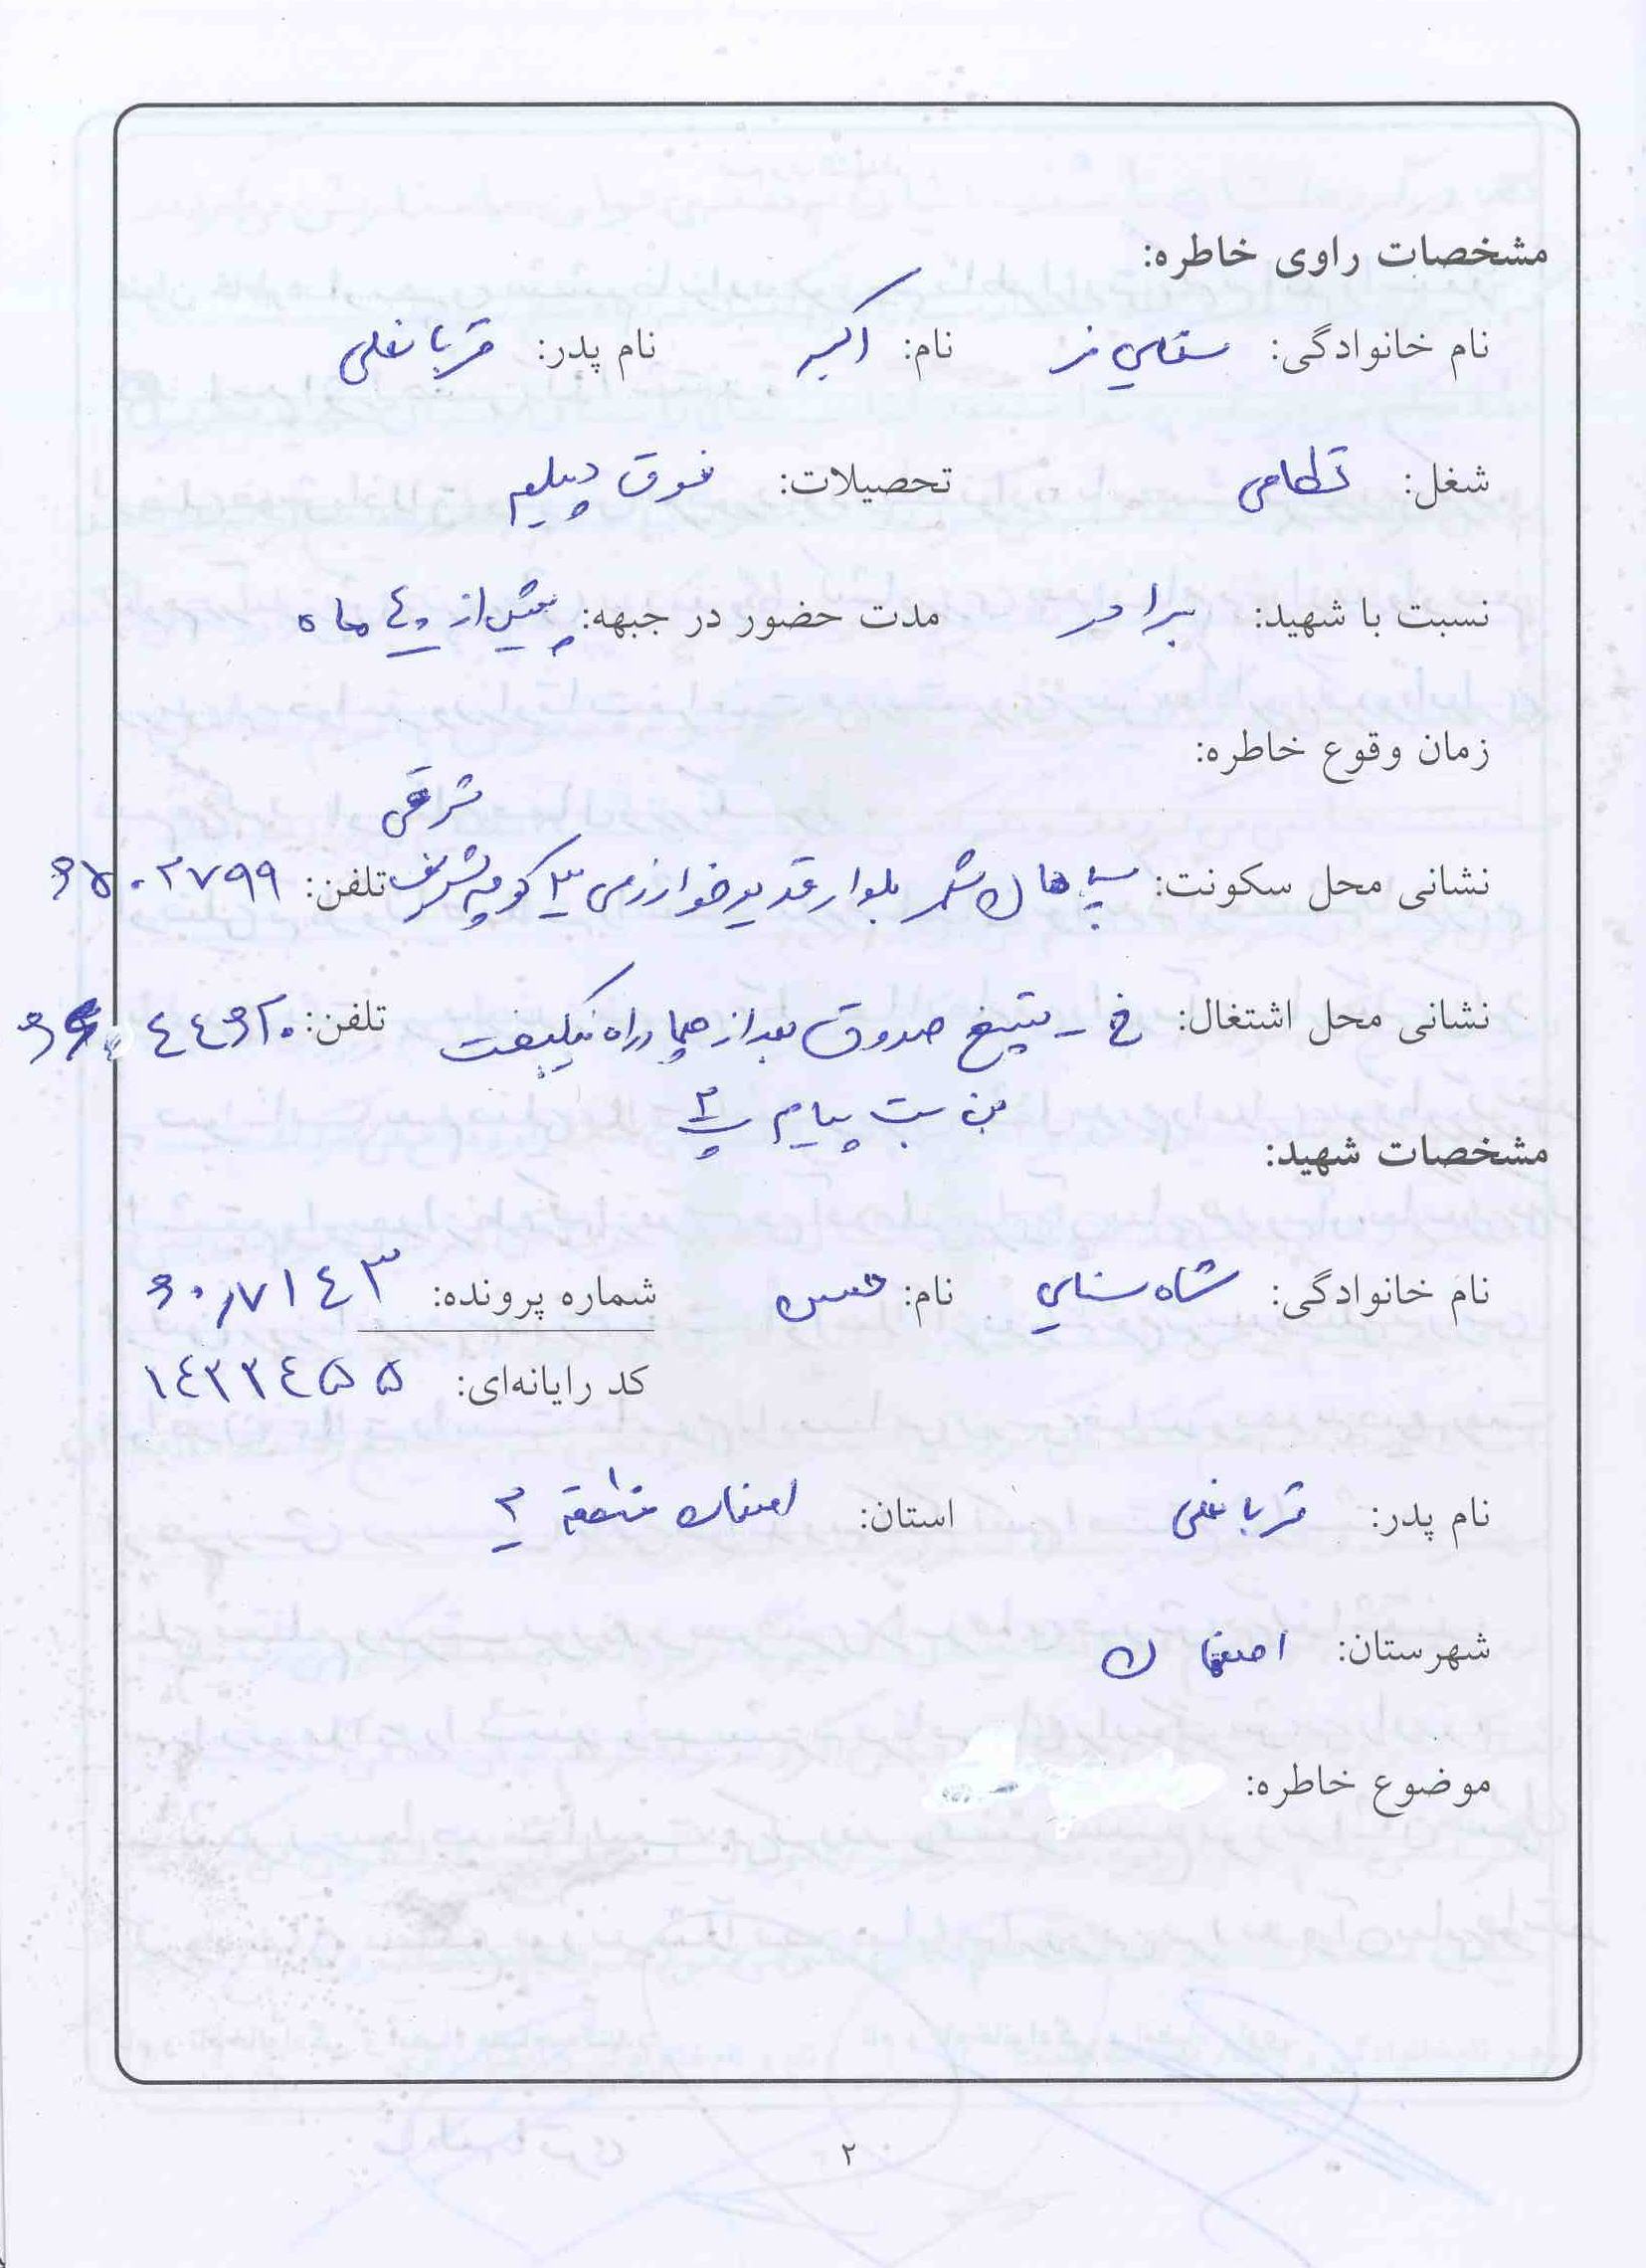 مشخصات راوی خاطره:
نام خانوادگی: سنایی فر نام: اکبر نام پدر: قربانعلی
شغل: نظامی تحصیلات: فوق دیپلم
نسبت با شهید: برادر مدت حضور در جبهه: بیش از ٤٠ ماه
زمان وقوع خاطره:
شرقی
نشانی محل سکونت: سپاهان شهر بلوار غدیر خوارزمی ٣ کوچه شریف تلفن: ٣٦٥٠٢٧٩٩
نشانی محل اشتغال: خ - شیخ صدوق بعد از چهارراه نیکبخت تلفن:
بن بست پیام پ ٣
مشخصات شهید:
نام خانوادگی: شاه سنایی نام: حسن شماره پرونده:
کد رایانه‌ای: ١٤٣٣٤٥٥
نام پدر: قربانعلی استان: اصفهان منطقه ٣
شهرستان: اصفهان
موضوع خاطره:
٢